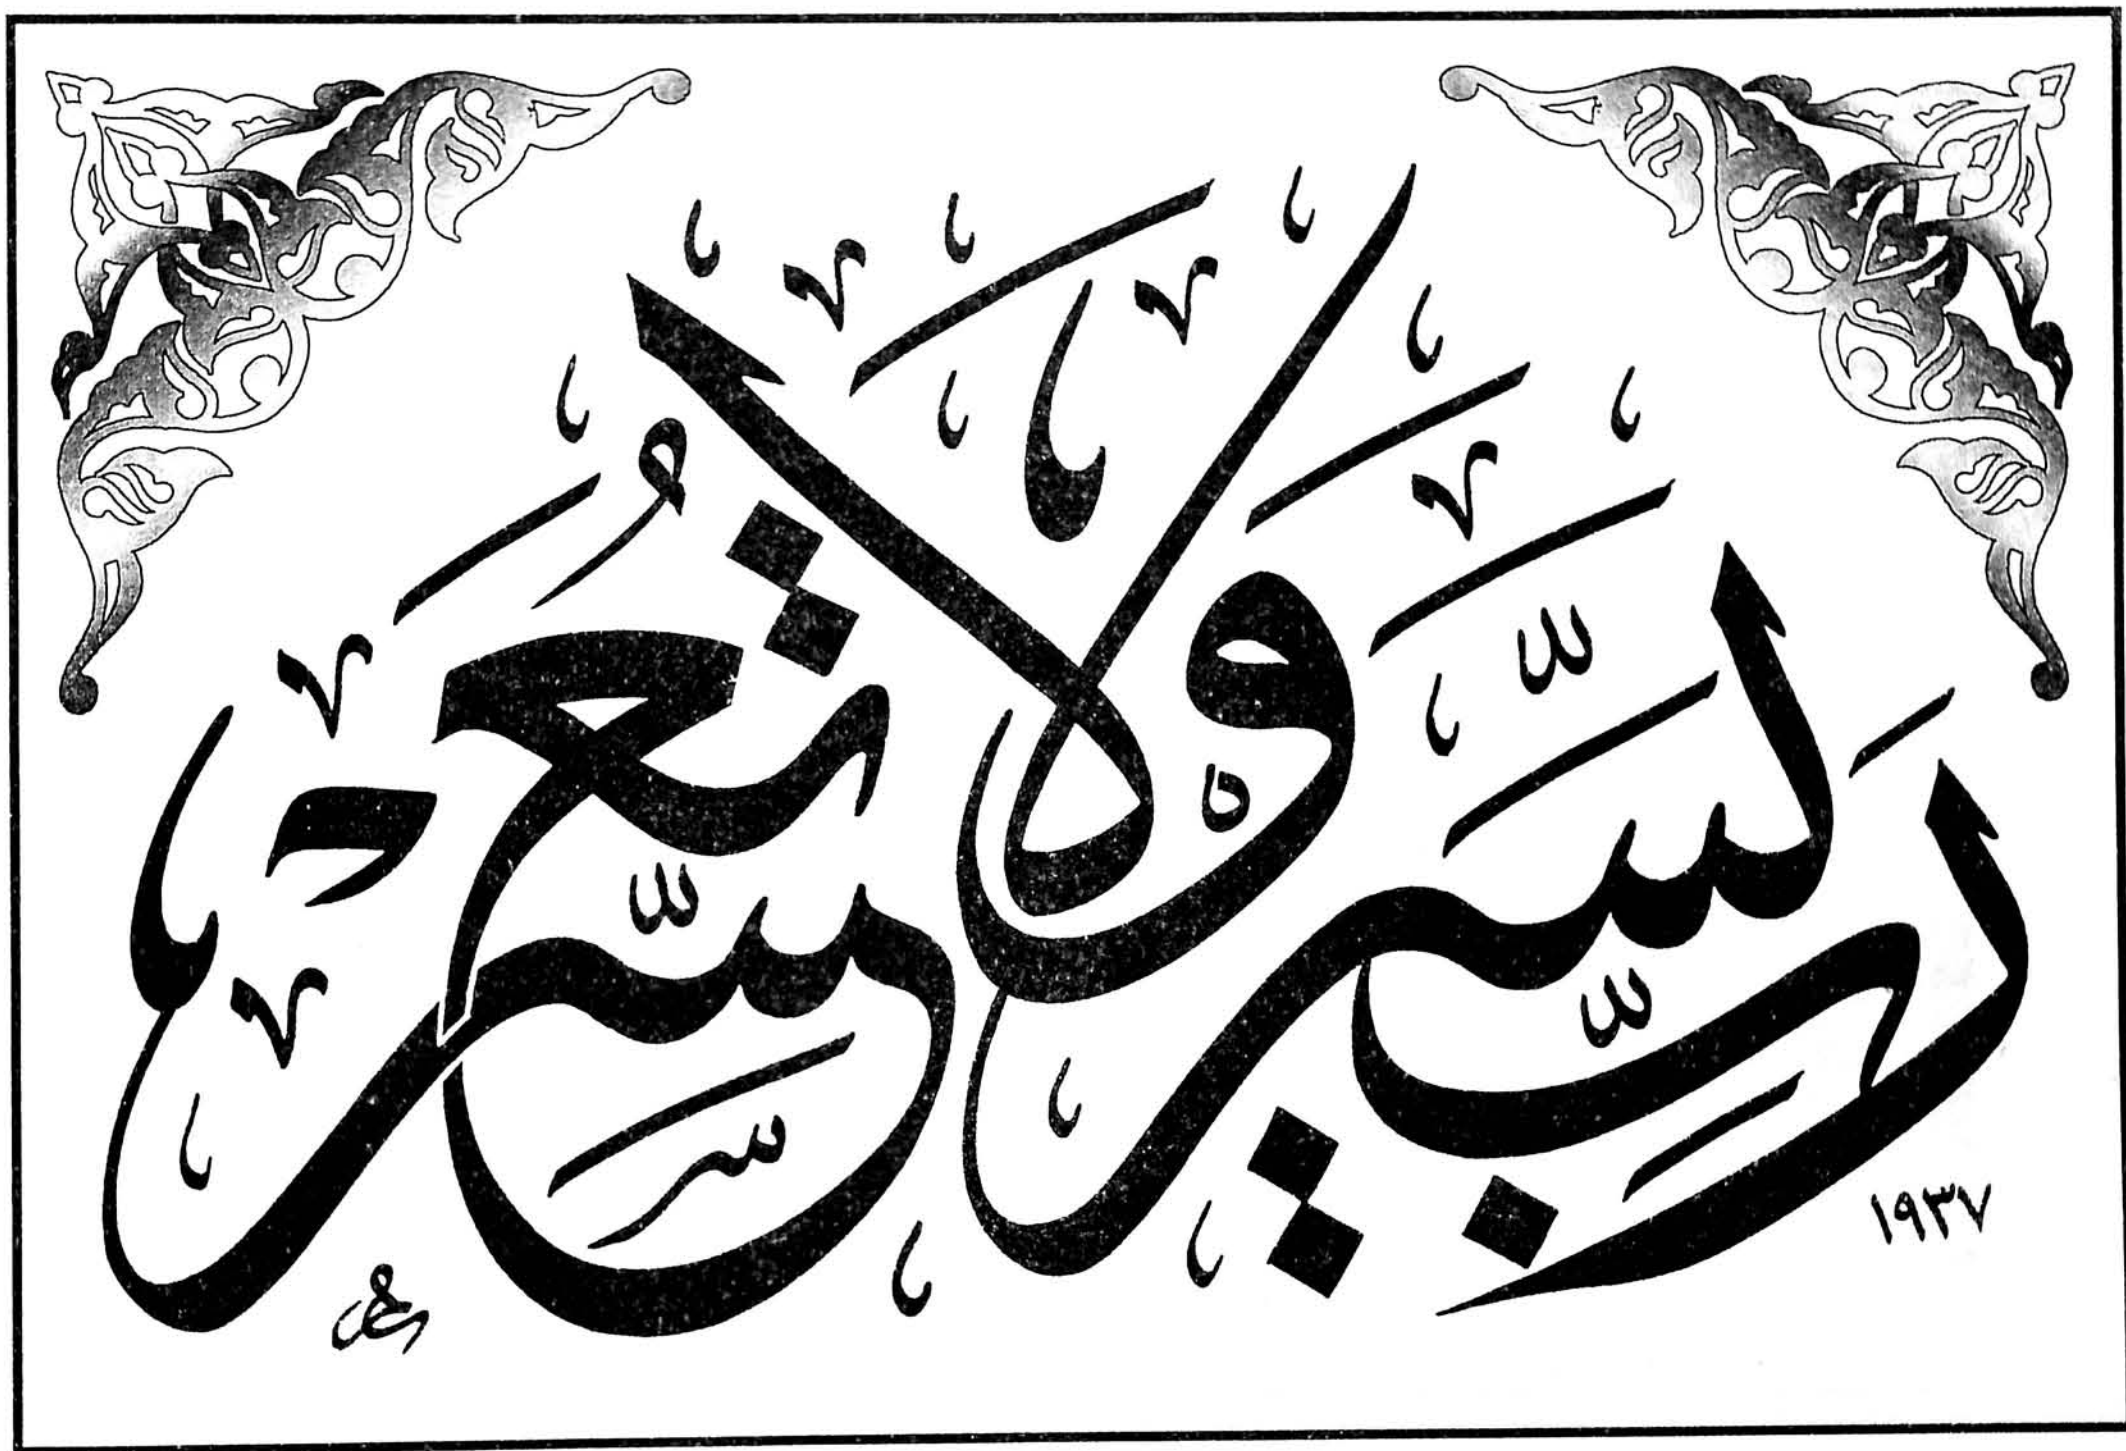 رَبِّ يَسِّرْ وَلَا تُعَسِّرْ
١٩٣٧